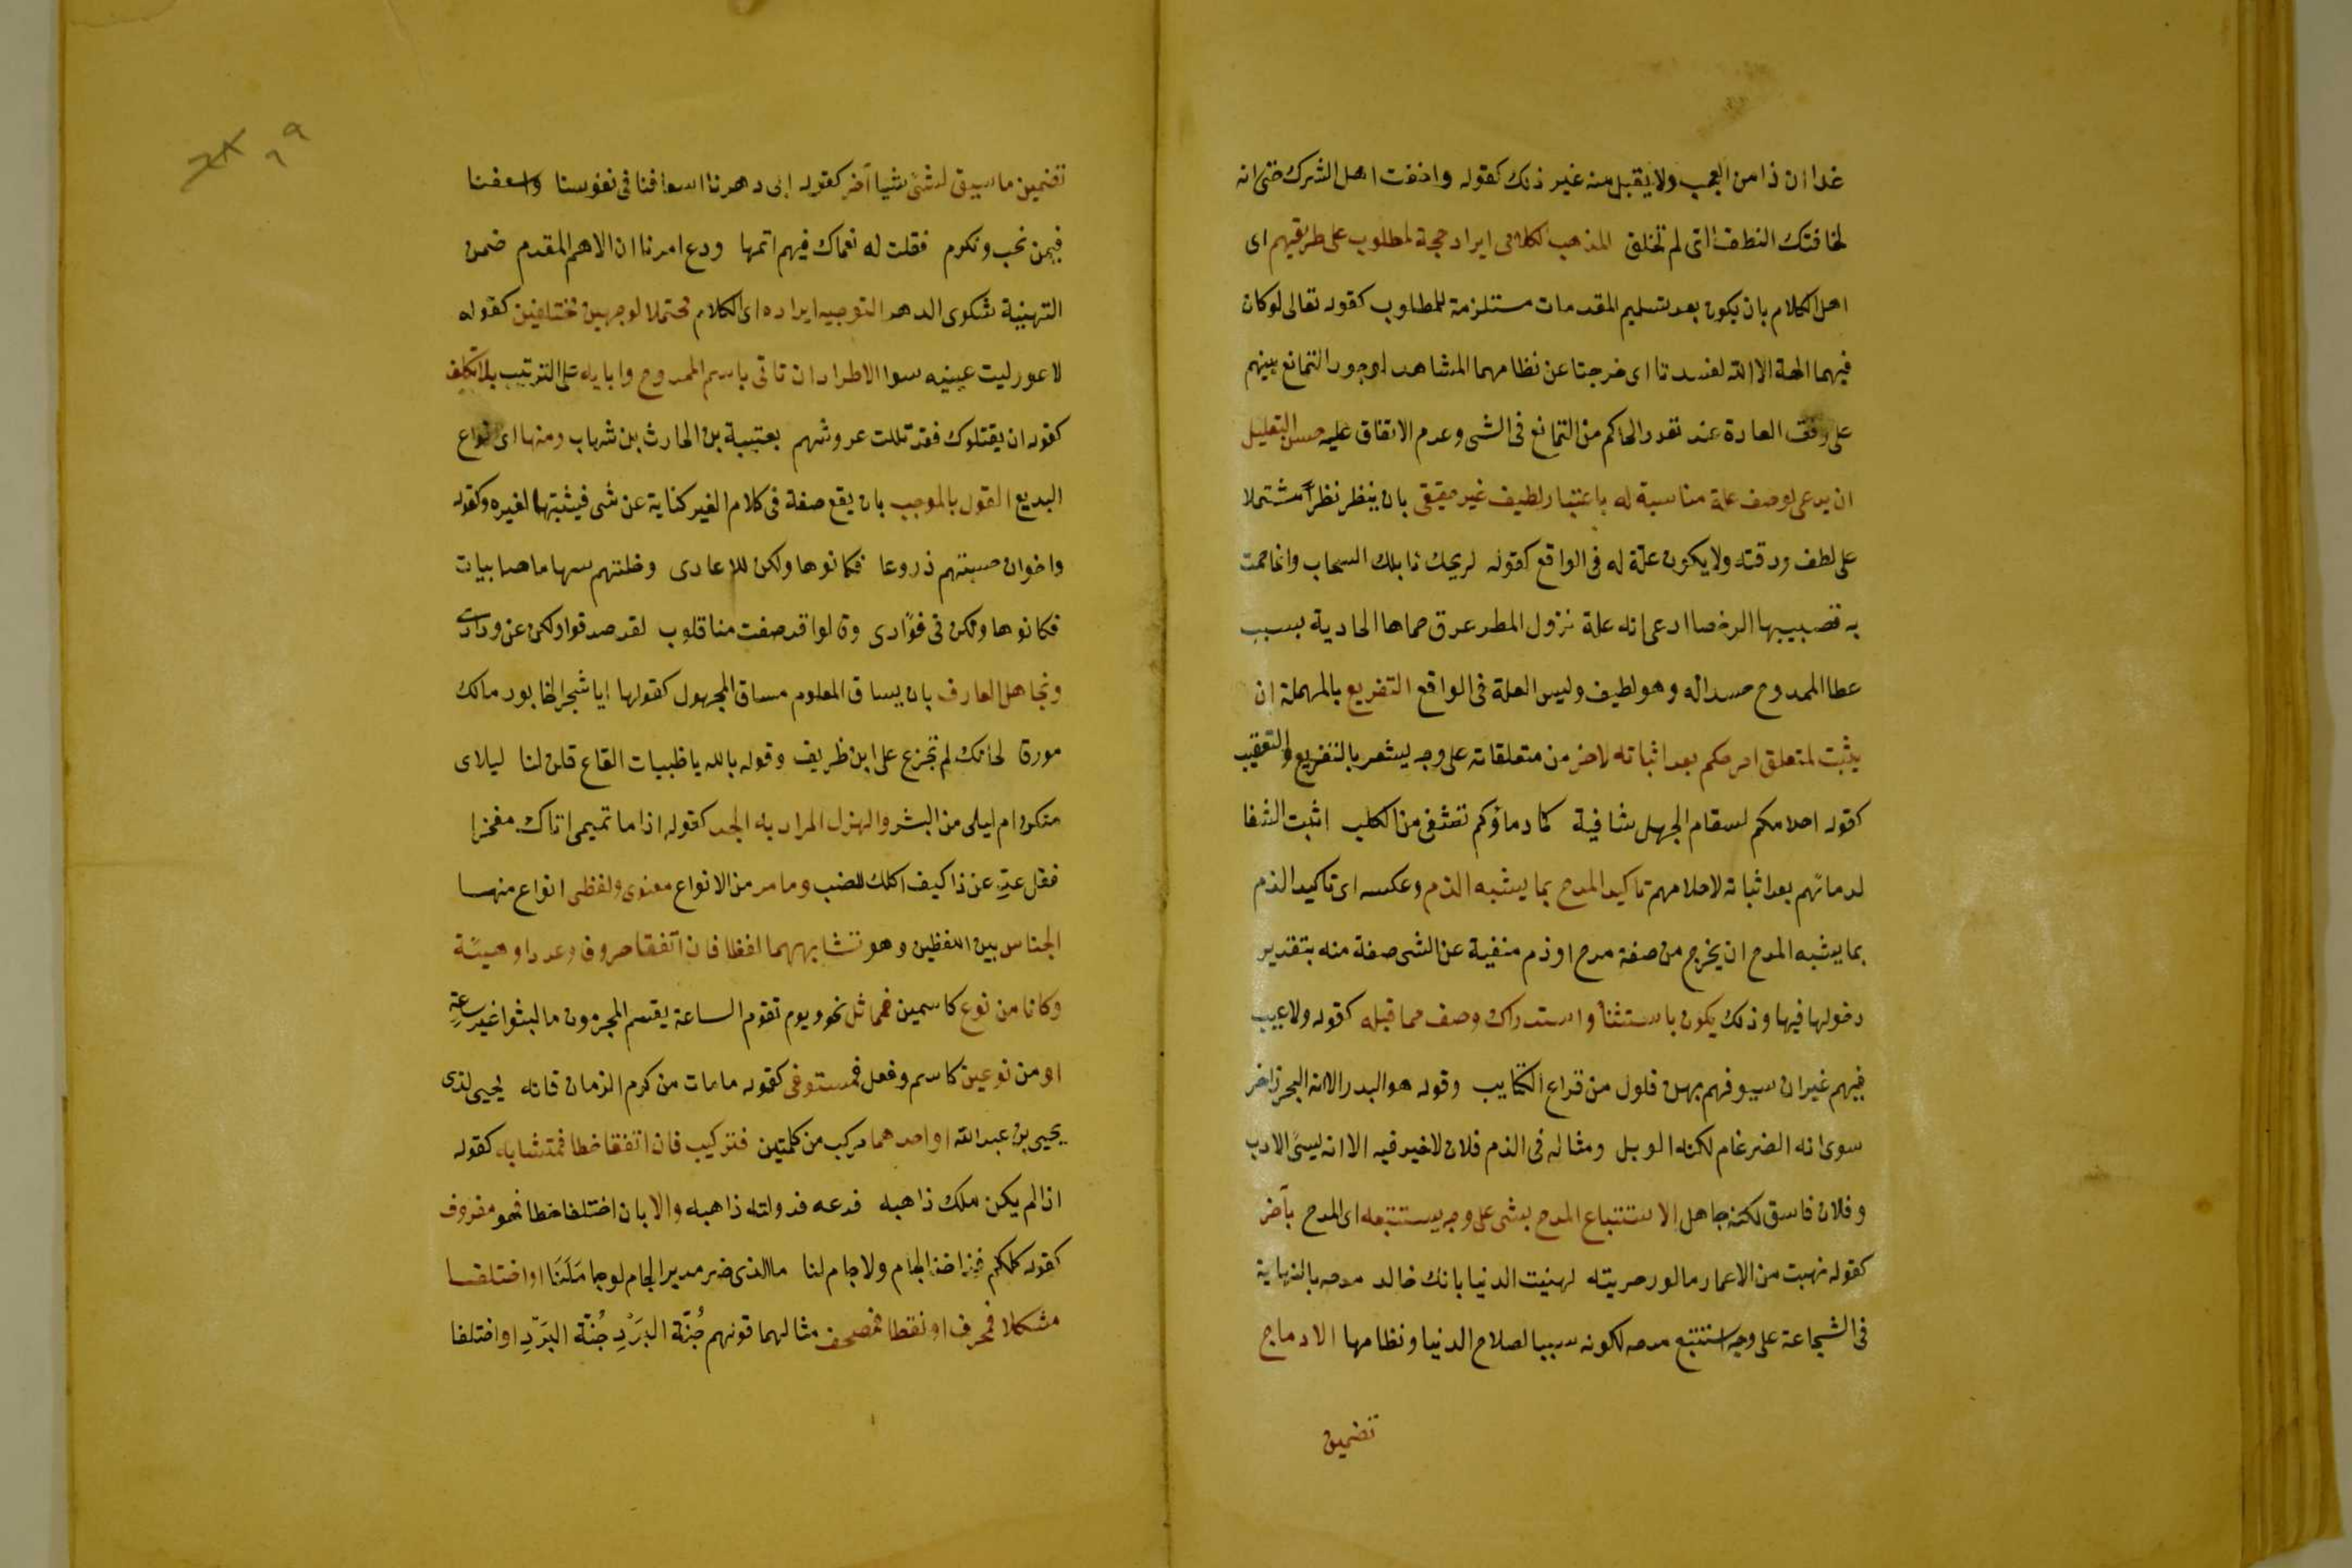 غدا ان ذا من العجب ولا يقبل منه غير ذلك كقوله واخفت اهل الشرك حتى انه
لتخافتك النطف التى لم تخلق المذهب الكلامى ايراد حجة لمطلوب على طريقهم اى
اهل الكلام بان يكون بعد تسليم المقدمات مستلزمة للمطلوب كقوله تعالى لو كان
فيهما الهة الا الله لفسدتا اى خرجتا عن نظامهما المشاهد لوجود التمانع بينهم
على وفق العادة عند تعدد الحاكم من التمانع فى الشى وعدم الاتفاق عليه حسن التعليل
ان يدعى لوصف علة مناسبة له باعتبار لطيف غير حقيقى بان ينظر نظرا مشتملا
على لطف ودقته ولا يكون علة له فى الواقع كقوله لم يحك نايلك السحاب وانما حمت
به فصبيبها الرخصا ادعى انه علة نزول المطر عرق حماها الحادية بسبب
عطا الممدوح حسدا له وهو لطيف وليس العلة فى الواقع التفريع بالمهملة ان
يثبت لمتعلق امر حكم بعد اثباته لاخر من متعلقاته على وجه يشعر بالتفريع والتعقيب
كقوله احلامكم لسقام الجهل شافية كما دماؤكم تشفى من الكلب اثبت الشفا
لدمائهم بعد اثباته لاحلامهم تاكيد المدح بما يشبه الذم وعكسه اى تاكيد الذم
بما يشبه المدح ان يخرج من صفة مدح او ذم منفية عن الشى صفة منه بتقدير
دخولها فيها وذلك يكون باستثنا واستدراك وصف مما قبله كقوله ولا عيب
فيهم غير ان سيوفهم بهن فلول من قراع الكتايب وقوله هو البدر الا انه البحر زاخر
سوى انه الضرغام لكنه الوبل ومثاله فى الذم فلان لا خير فيه الا انه يسئ الادب
وفلان فاسق لكنه جاهل الاستتباع المدح بشى على وجه يستتبعه اى المدح بآخر
كقوله نهبت من الاعمار ما لو حويته لهنيت الدنيا بانك خالد مدحه بالنهاية
فى الشجاعة على وجه استتبع مدحه لكونه سببا لصلاح الدنيا ونظامها الادماج
تضمين
٦٩
تضمين ما سيق لشئ شيا آخر كقوله ابى دهرنا اسعافنا فى نفوسنا واسعفنا
فيمن نحب ونكرم فقلت له نعماك فيهم اتمها ودع امرنا ان الاهم المقدم ضمن
التهنية شكوى الدهر التوجيه ايراده اى الكلام محتملا لوجهين مختلفين كقوله
لاعور ليت عينيه سوا الاطراد ان تاتى باسم الممدوح وابايه على الترتيب بلا تكلف
كقوله ان يقتلوك فقد ثللت عروشهم بعتيبة بن الحارث بن شهاب ومنها اى انواع
البديع القول بالموجب بان يقع صفة فى كلام الغير كناية عن شى فيثبتها لغيره كقوله
واخوان حسبتهم دروعا فكانوها ولكن للاعادى وخلتهم سهاما صايبات
فكانوها ولكن فى فؤادى وقالوا قد صفت منا قلوب لقد صدقوا ولكن عن ودادى
وتجاهل العارف بان يساق المعلوم مساق المجهول كقولها ايا شجر الخابور مالك
مورقا كانك لم تجزع على ابن طريف وقوله بالله يا ظبيات القاع قلن لنا ليلاى
منكن ام ليلى من البشر والهزل المراد به الجد كقوله اذا ما تميمى اتاك مفخرا
فقل عدّ عن ذا كيف اكلك للضب وما مر من الانواع معنوى ولفظى انواع منها
الجناس بين اللفظين وهو تشابههما لفظا فان اتفقا حروفا وعددا وهيئة
وكانا من نوع كاسمين فمماثل نحو ويوم تقوم الساعة يقسم المجرمون ما لبثوا غير ساعة
او من نوعين كاسم وفعل فمستوفى كقوله ما مات من كرم الزمان فانه يحيى لدى
يحيى بن عبد الله او احدهما مركب من كلمتين فتركيب فان اتفقا خطا فمتشابه كقوله
اذا لم يكن ملك ذا هبه فدعه فدولته ذاهبه والا بان اختلفا خطا فهو مفروق
كقوله كلكم قد اخذ الجام ولا جام لنا ما الذى ضر مدير الجام لو جامَلَنَا او اختلفا
مشكلا فمحرف او نقطا فمصحف مثالهما قولهم جُبّة البُرْدِ جُنّة البَرْدِ او اختلفا